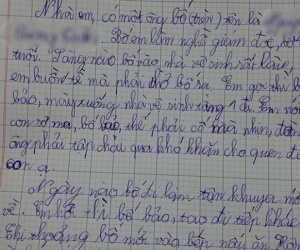 Nhà em, có một ông bố (trên) tên là
Bố em làm nghề giám đ
tuổi. Sáng nào bố vào nhà vệ sinh rất lâu,
em buồn tè mà phải chờ bố ra. Em gọi thì b
bảo, mày xuống nhà vệ sinh tầng 1 đi. Em nói
con sợ ma, bố bảo, thế phải cố mà nhịn, đàn
ông phải tập chịu qua khó khăn cho quen đi
con ạ.
Ngày nào bố đi làm tận khuya mớ
về. Em hỏi thì bố bảo, tao đi tiếp khác
Thi thoảng bố mới vào bếp nấu ăn.